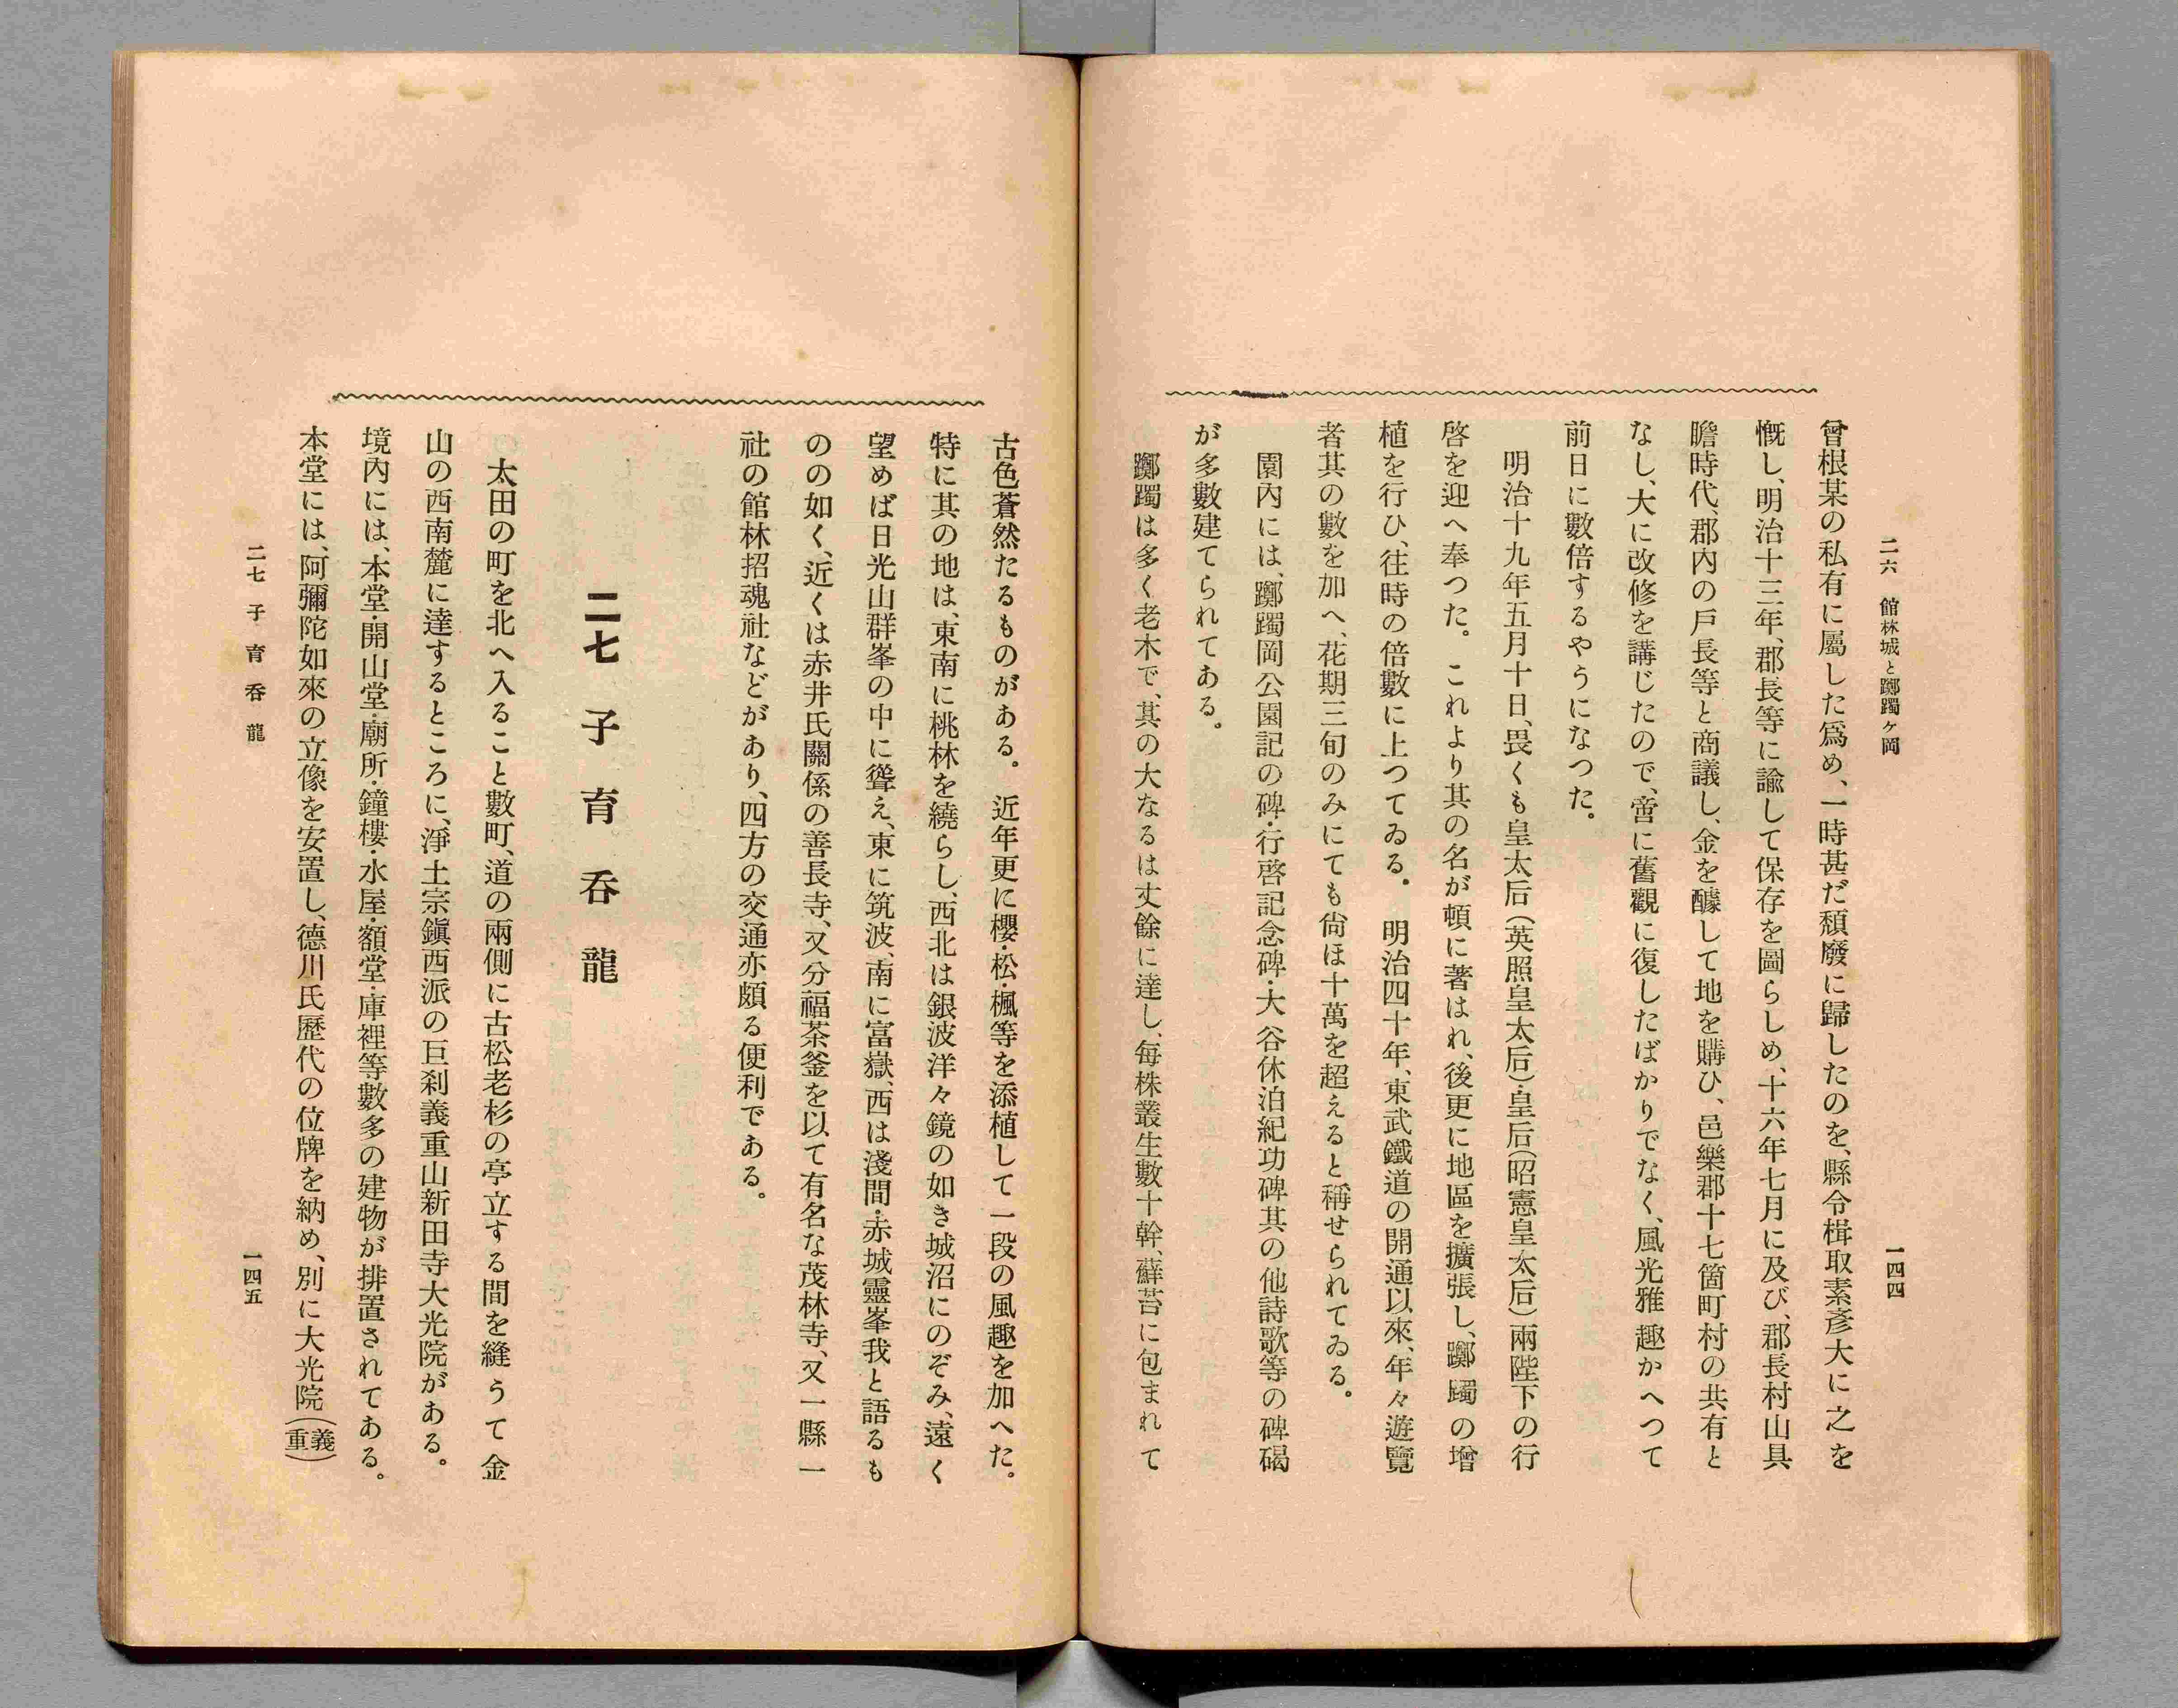 二六 館林城と躑躅ヶ岡
一四四
曾根某の私有に屬した爲め、一時甚だ頽廢に歸したのを、縣令楫取素彥大に之を
慨し、明治十三年、郡長等に諭して保存を圖らしめ、十六年七月に及び、郡長村山具
瞻時代、郡內の戶長等と商議し、金を醵して地を購ひ、邑樂郡十七箇町村の共有と
なし、大に改修を講じたので、啻に舊觀に復したばかりでなく、風光雅趣かへつて
前日に數倍するやうになつた。
明治十九年五月十日、畏くも皇太后(英照皇太后)・皇后(昭憲皇太后)兩陛下の行
啓を迎へ奉つた。これより其の名が頓に著はれ、後更に地區を擴張し、躑躅の增
植を行ひ、往時の倍數に上つてゐる。明治四十年、東武鐵道の開通以來、年々遊覽
者其の數を加へ、花期三旬のみにても尙ほ十萬を超えると稱せられてゐる。
園內には、躑躅岡公園記の碑・行啓記念碑・大谷休泊紀功碑其の他詩歌等の碑碣
が多數建てられてある。
躑躅は多く老木で、其の大なるは丈餘に達し、每株叢生數十幹、蘚苔に包まれて
古色蒼然たるものがある。近年更に櫻・松・楓等を添植して一段の風趣を加へた。
特に其の地は、東南に桃林を繞らし、西北は銀波洋々鏡の如き城沼にのぞみ、遠く
望めば日光山群峯の中に聳え、東に筑波、南に富嶽、西は淺間・赤城靈峯我と語るも
のの如く、近くは赤井氏關係の善長寺、又分福茶釜を以て有名な茂林寺、又一縣一
社の館林招魂社などがあり、四方の交通亦頗る便利である。
二七 子育呑龍
太田の町を北へ入ること數町、道の兩側に古松老杉の亭立する間を縫うて金
山の西南麓に達するところに、淨土宗鎭西派の巨刹義重山新田寺大光院がある。
境內には、本堂・開山堂・廟所・鐘樓・水屋・額堂・庫裡等數多の建物が排置されてある。
本堂には、阿彌陀如來の立像を安置し、德川氏歷代の位牌を納め、別に大光院(義重)
二七 子育呑龍
一四五